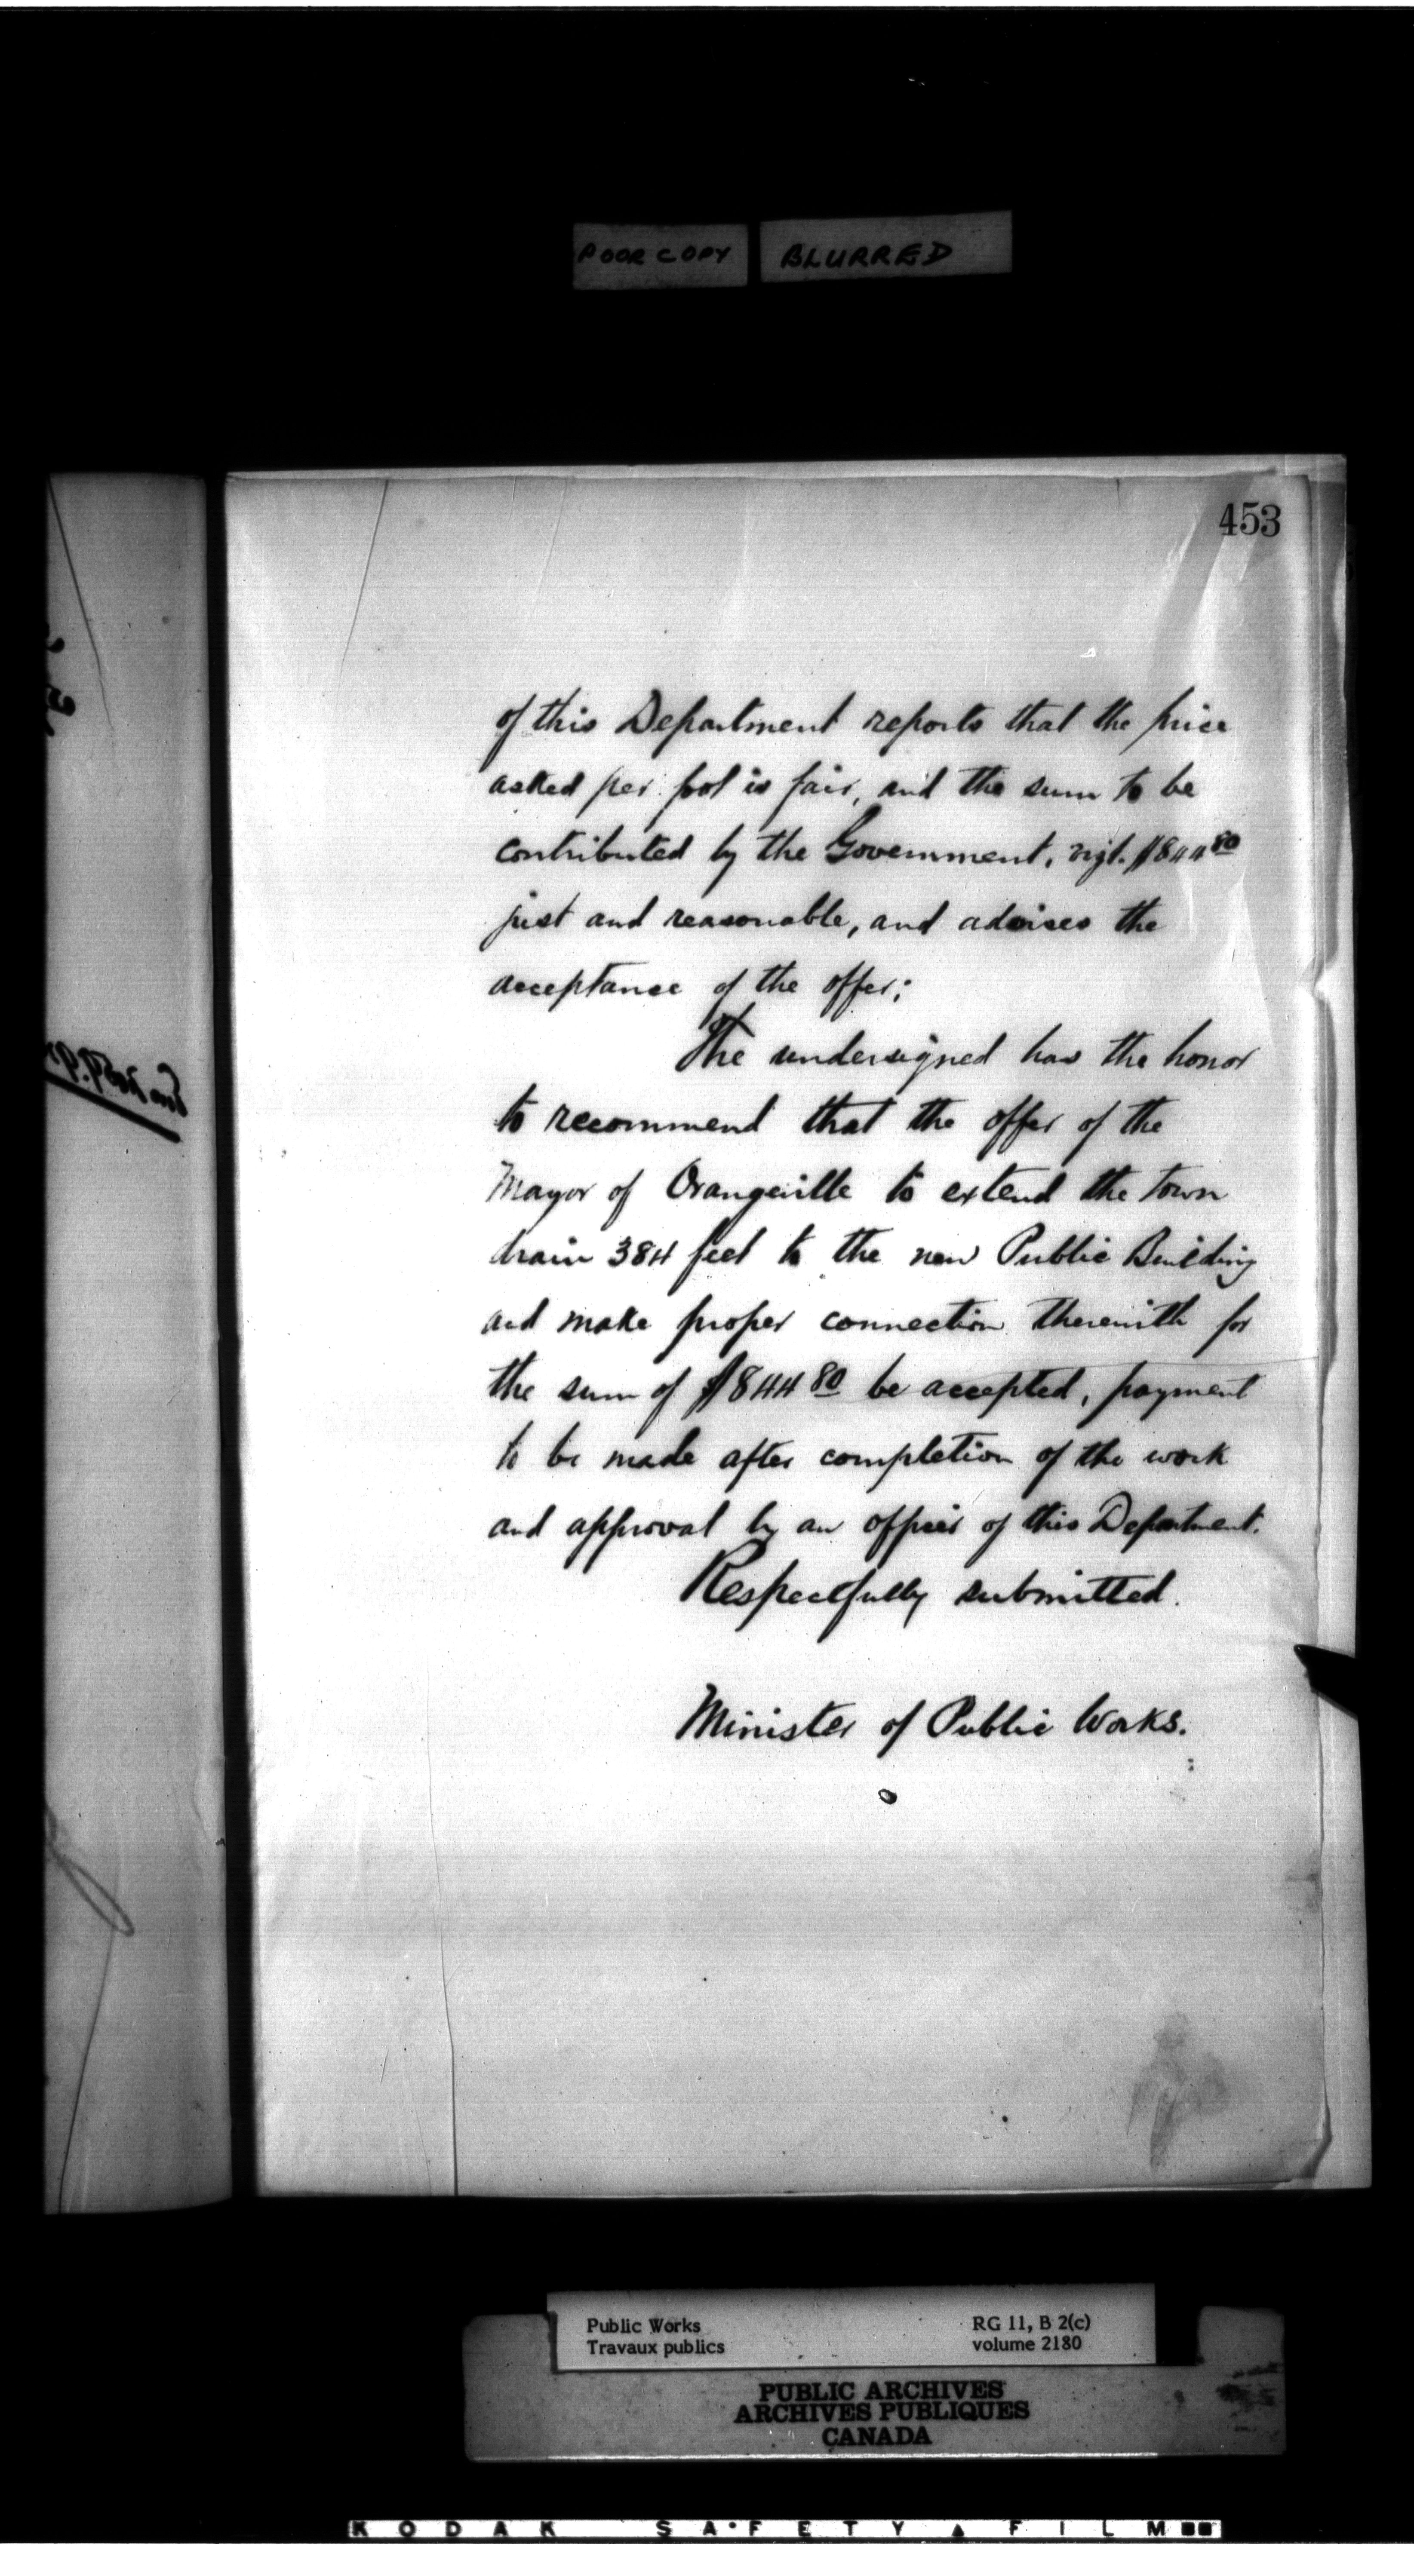 POOR COPY BLURRED
453
of this Department reports that the price
asked per foot is fair, and the sum to be
contributed by the Government, vizt. $844 80
just and reasonable, and advises the
acceptance of the offer;
The undersigned has the honor
to recommend that the offer of the
Mayor of Orangeville to extend the town
drain 384 feet to the new Public Building
and make proper connection therewith for
the sum of $844 80 be accepted, payment
to be made after completion of the work
and approval by an officer of this Department.
Respectfully submitted.
Minister of Public Works.
Public Works
Travaux publics
RG 11, B 2(c)
volume 2180
PUBLIC ARCHIVES
ARCHIVES PUBLIQUES
CANADA
KODAK SAFETY FILM